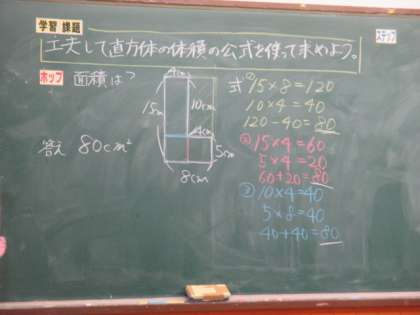 学習 課題
工夫して直方体の体積の公式を使って求めよう。
ステップ
ホップ 面積は?
4cm
15cm
10cm
4cm
5cm
8cm
答え 80cm²
式 ① 15×8=120
10×4=40
120-40=80
② 15×4=60
5×4=20
60+20=80
③ 10×4=40
5×8=40
40+40=80